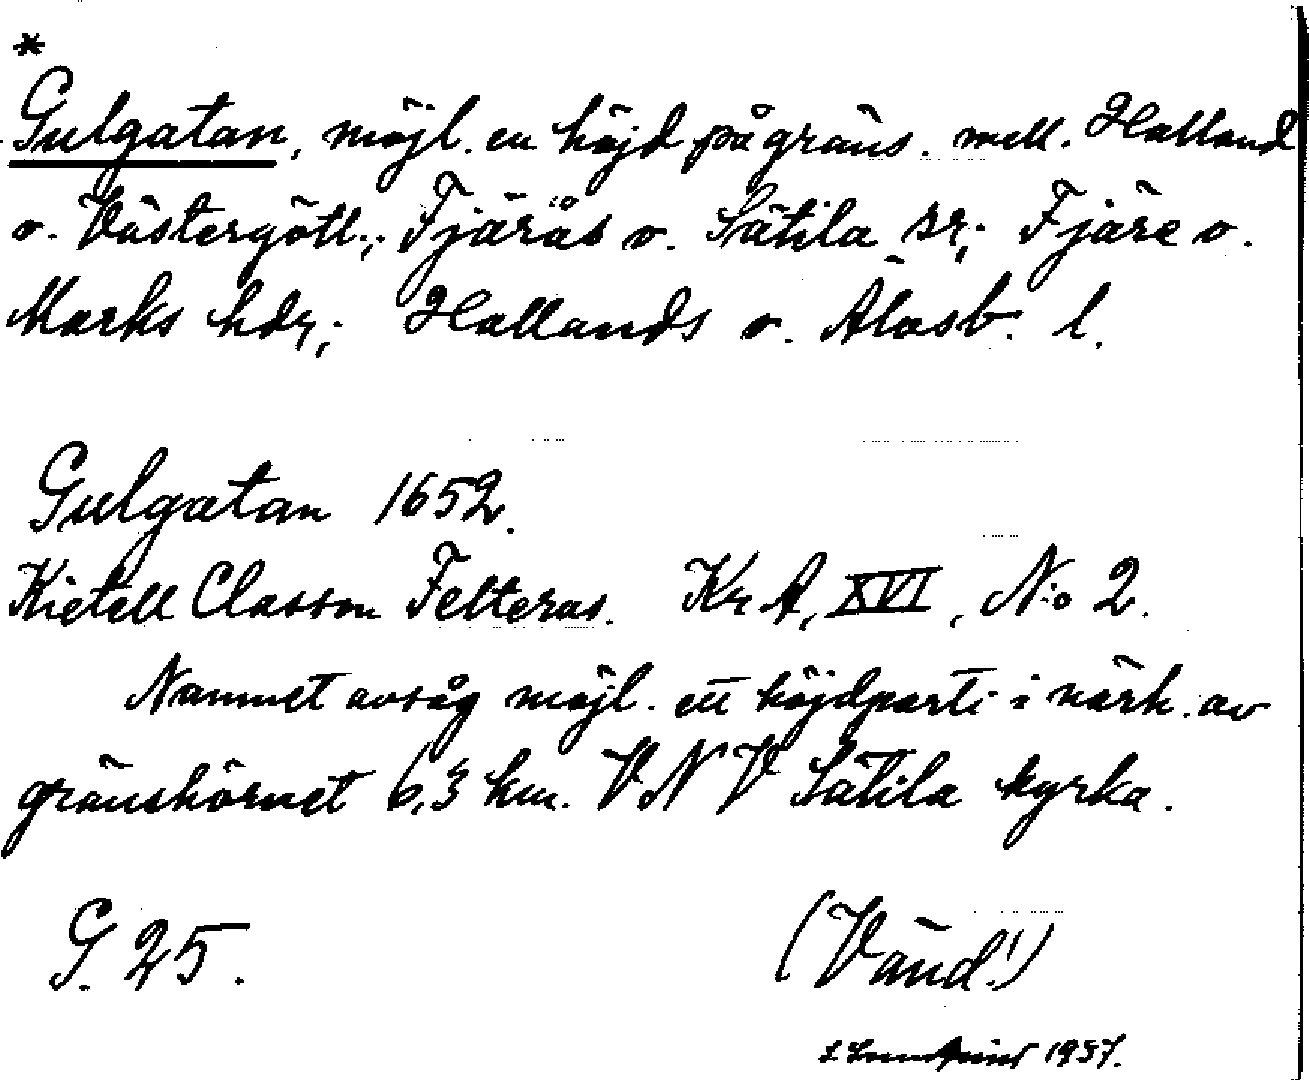 *
Gulgatan, möjl. en höjd på gräns. mell. Halland
o. Västergötl.; Fjärås o. Sätila sr; Fjäre o.
Marks hdr; Hallands o. Älvsb. l.
Gulgatan 1652.
Kietell Classon Felterus. Kr A, XVI, N:o 2.
Namnet avsåg möjl. ett höjdparti i närh. av
gränshörnet 6,3 km. VNV Sätila kyrka.
G. 25.
(Vänd!)
1937.